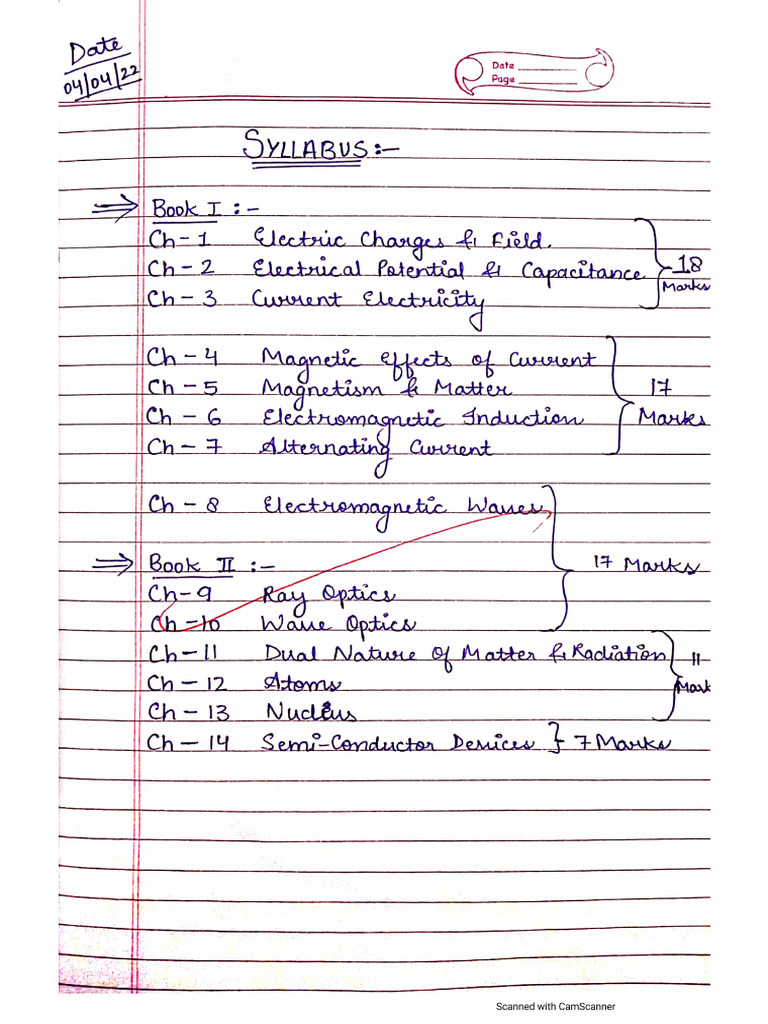 Date
04/04/22
Date
Page
SYLLABUS:-
⇒ Book I :-
Ch-1 Electric Charges & Field.
Ch-2 Electrical Potential & Capacitance
18 Marks
Ch-3 Current Electricity
Ch-4 Magnetic Effects of Current
Ch-5 Magnetism & Matter
17 Marks
Ch-6 Electromagnetic Induction
Ch-7 Alternating Current
Ch-8 Electromagnetic Waves
⇒ Book II :-
17 Marks
Ch-9 Ray Optics
Ch-10 Wave Optics
Ch-11 Dual Nature of Matter & Radiation
11 Mark
Ch-12 Atoms
Ch-13 Nucleus
Ch-14 Semi-Conductor Devices } 7 Marks
Scanned with CamScanner